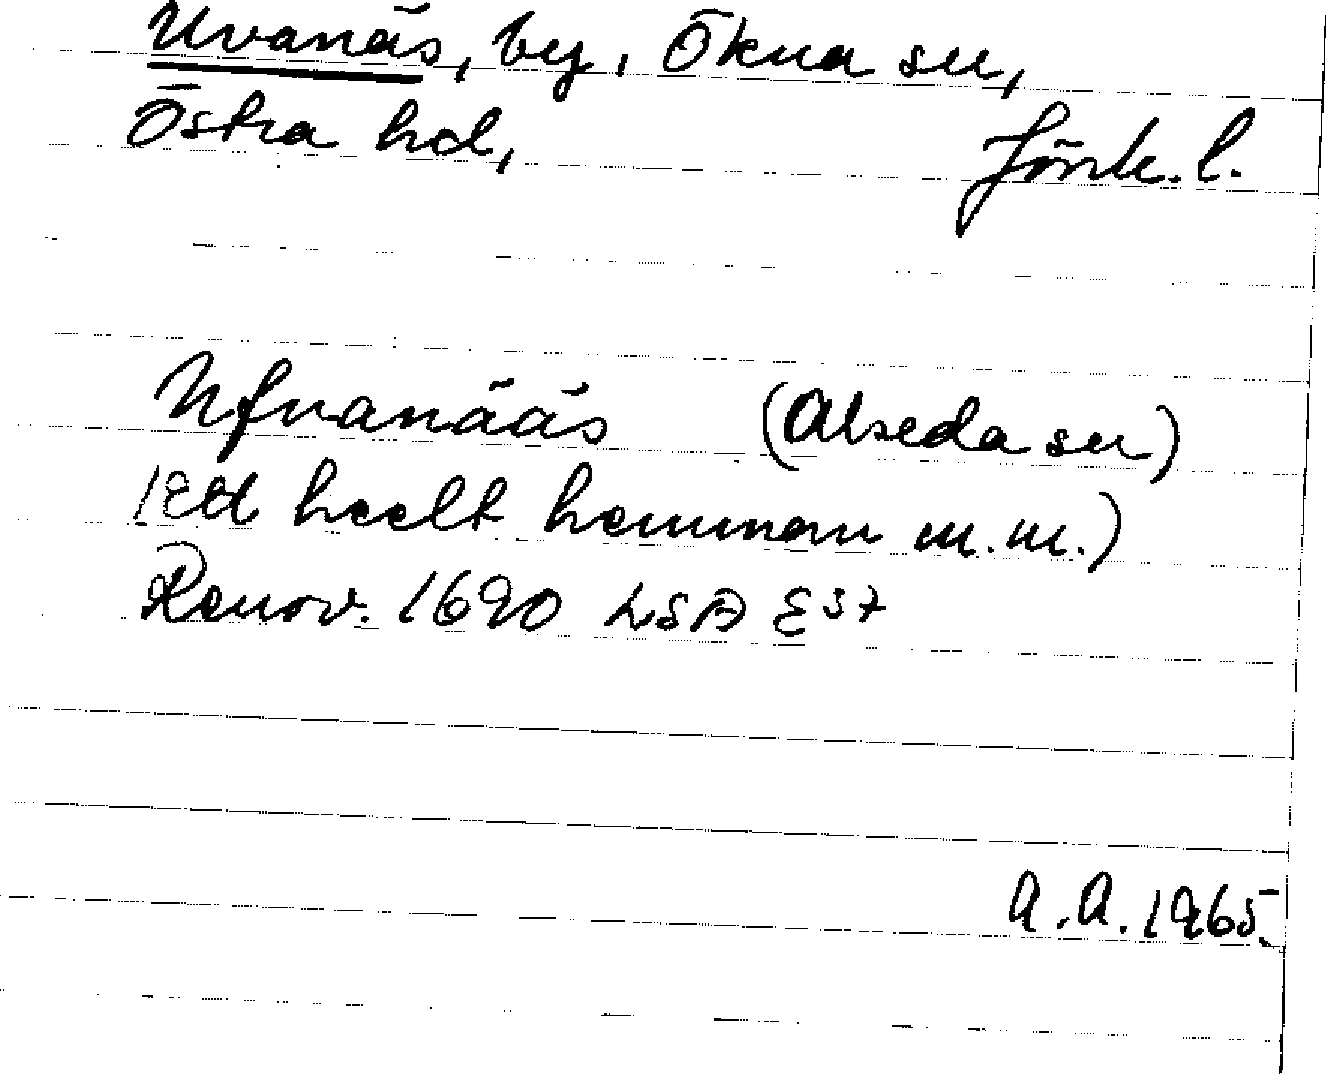 Uvanäs, by, Ökna sn,
Östra hd, Jönk. l.
Ufvanääs (Alseda sn)
(Ett heelt hemman m.m.)
Renov. 1690 LSA E 37
A.A. 1965.